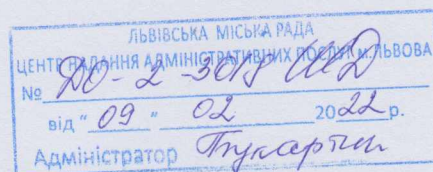 ЛЬВІВСЬКА МІСЬКА РАДА
ЦЕНТР НАДАННЯ АДМІНІСТРАТИВНИХ ПОСЛУГ м.ЛЬВОВА
№ ДО-2-3018
від " 09 " 02 2022 р.
Адміністратор